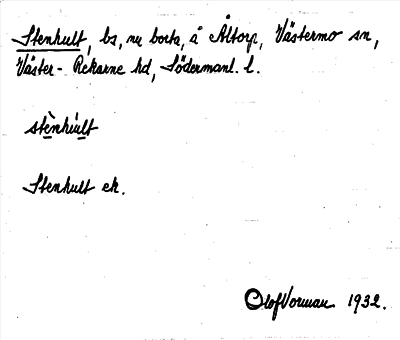 Stenhult, bs, nu borta, å Åltorp, Västermo sn,
Väster-Rekarne hd, Södermanl. l.
stènhùlt
Stenhult ek.
Olof Vorman 1932.